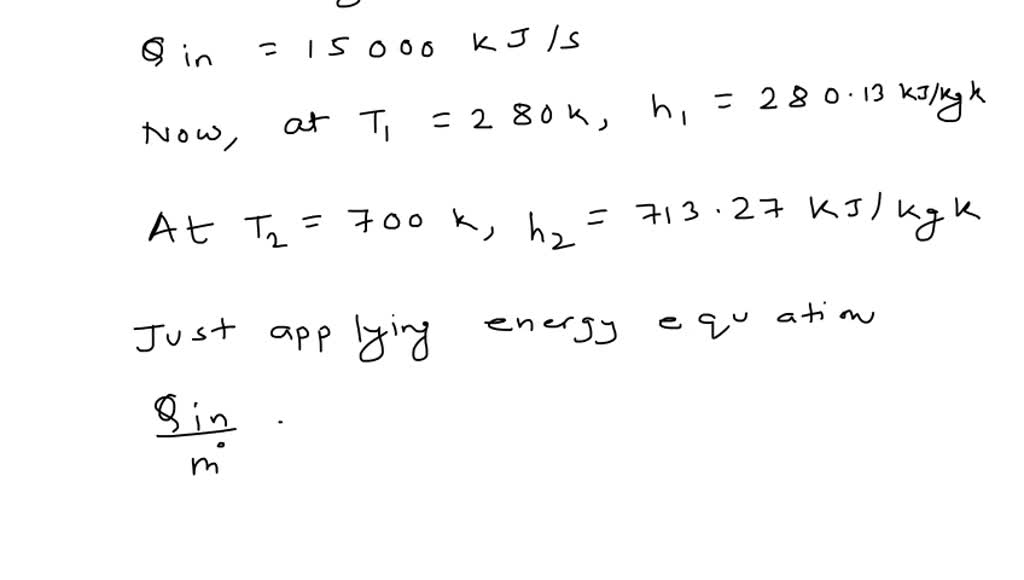 Qin = 15000 KJ/s
Now, at T1 = 280K, h1 = 280.13 KJ/kgK
At T2 = 700 K, h2 = 713.27 KJ/kgK
Just applying energy equation
Qin
ṁ